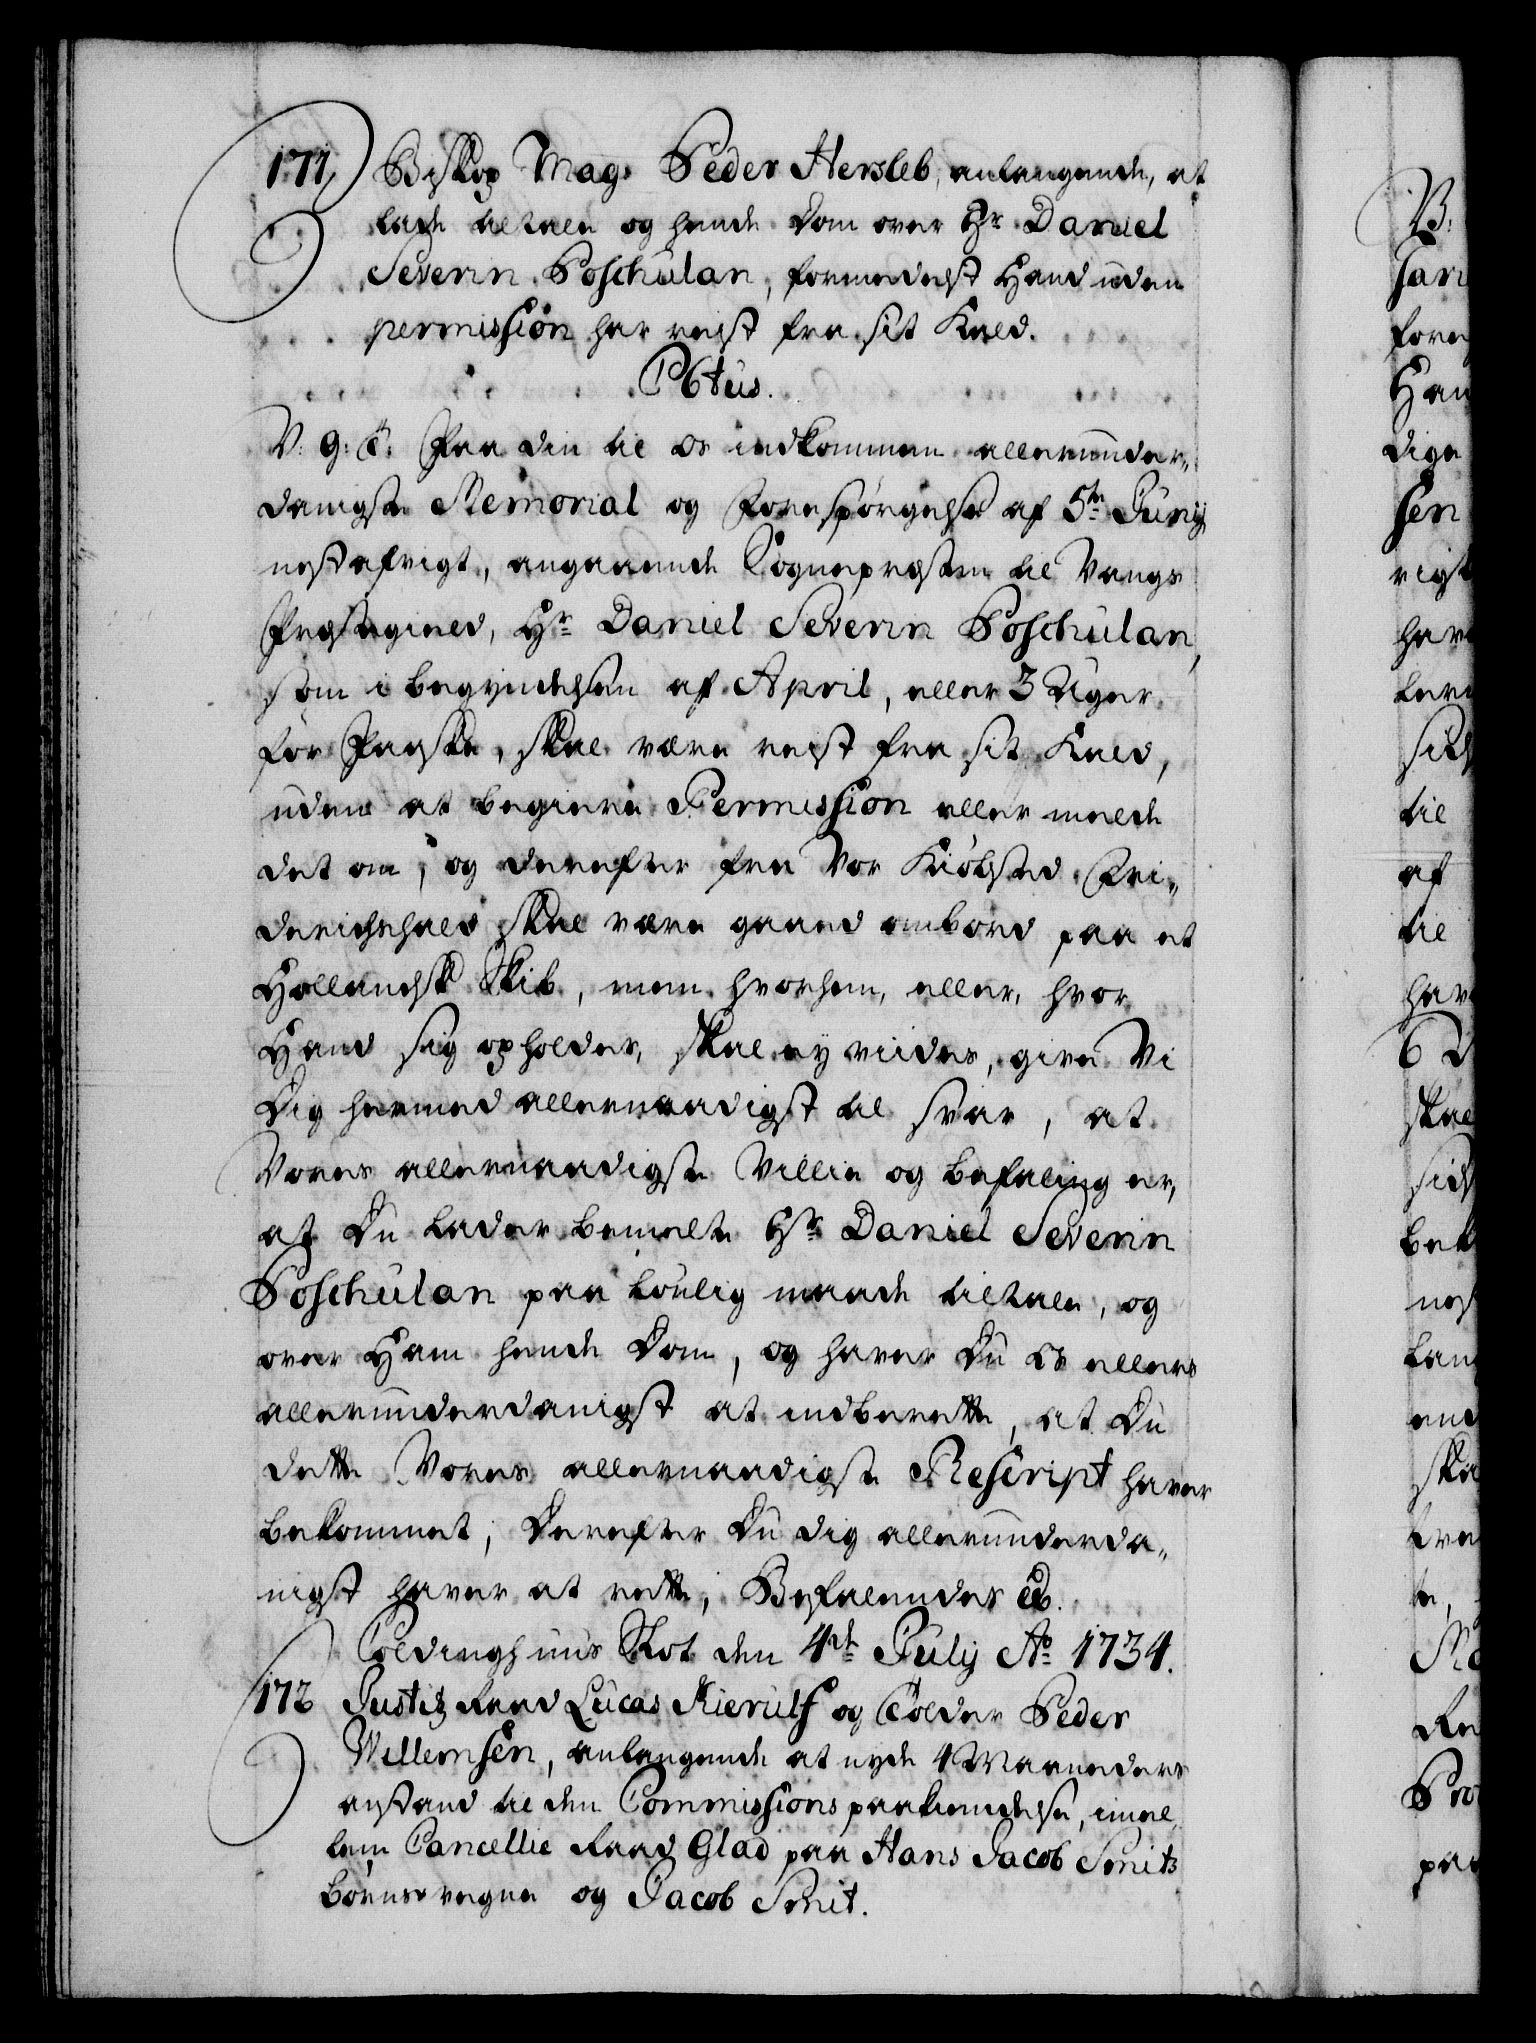 171, Biskop Mag. Peder Hersleb, anlangende, at
lade tiltale og hende Dom over Hr. Daniel
Severin Poschulan, formedelst Hand uden
permission har reist fra sit Kald.
C6tus.
V. g. T. Paa din til os indkommen allerunder„
danigste Memorial og Forespørgelse af 5te Junij
nestafvigt, angaaende Sognepresten til Vangs
Prestegield, Hr Daniel Severin Poschulan,
som i begyndelsen af April, eller 3 Uger
før Paaske, skal være reist fra sit Kald,
uden at begiere Permission eller melde
det om, og derefter fra Vor Kiøbsted Fri„
derichshald skal være gaaed ombord paa et
Hollandsk Skib, men hvorhen, eller, hvor
Hand sig opholder, skal ey viides, give Vi
Dig hermed allernaadigst til svar, at
Vores allernaadigste Villie og befaling er,
at Du lader bemelte Hr Daniel Severin
Poschulan paa lovlig maade tiltale, og
over Ham hende Dom, og haver Du os ellers
allerunderdanigst at indberette, at Du
dette Vores allernaadigste Rescript haver
bekommet, Derefter Du dig allerunderda„
nigst haver at rette, Befalendes etc.
Coldinghuus Slot den 4de July Ao 1734.
172 Justitz Raad Lucas Kierulf og Tolder Peder
Willemsen, anlangende at nyde 4 Maaneders
anstand til den Commissions paakiendelse, imel
lem Cancellie Raad Glad paa Hans Jacob Smits
børns vegne og Jacob Smit.